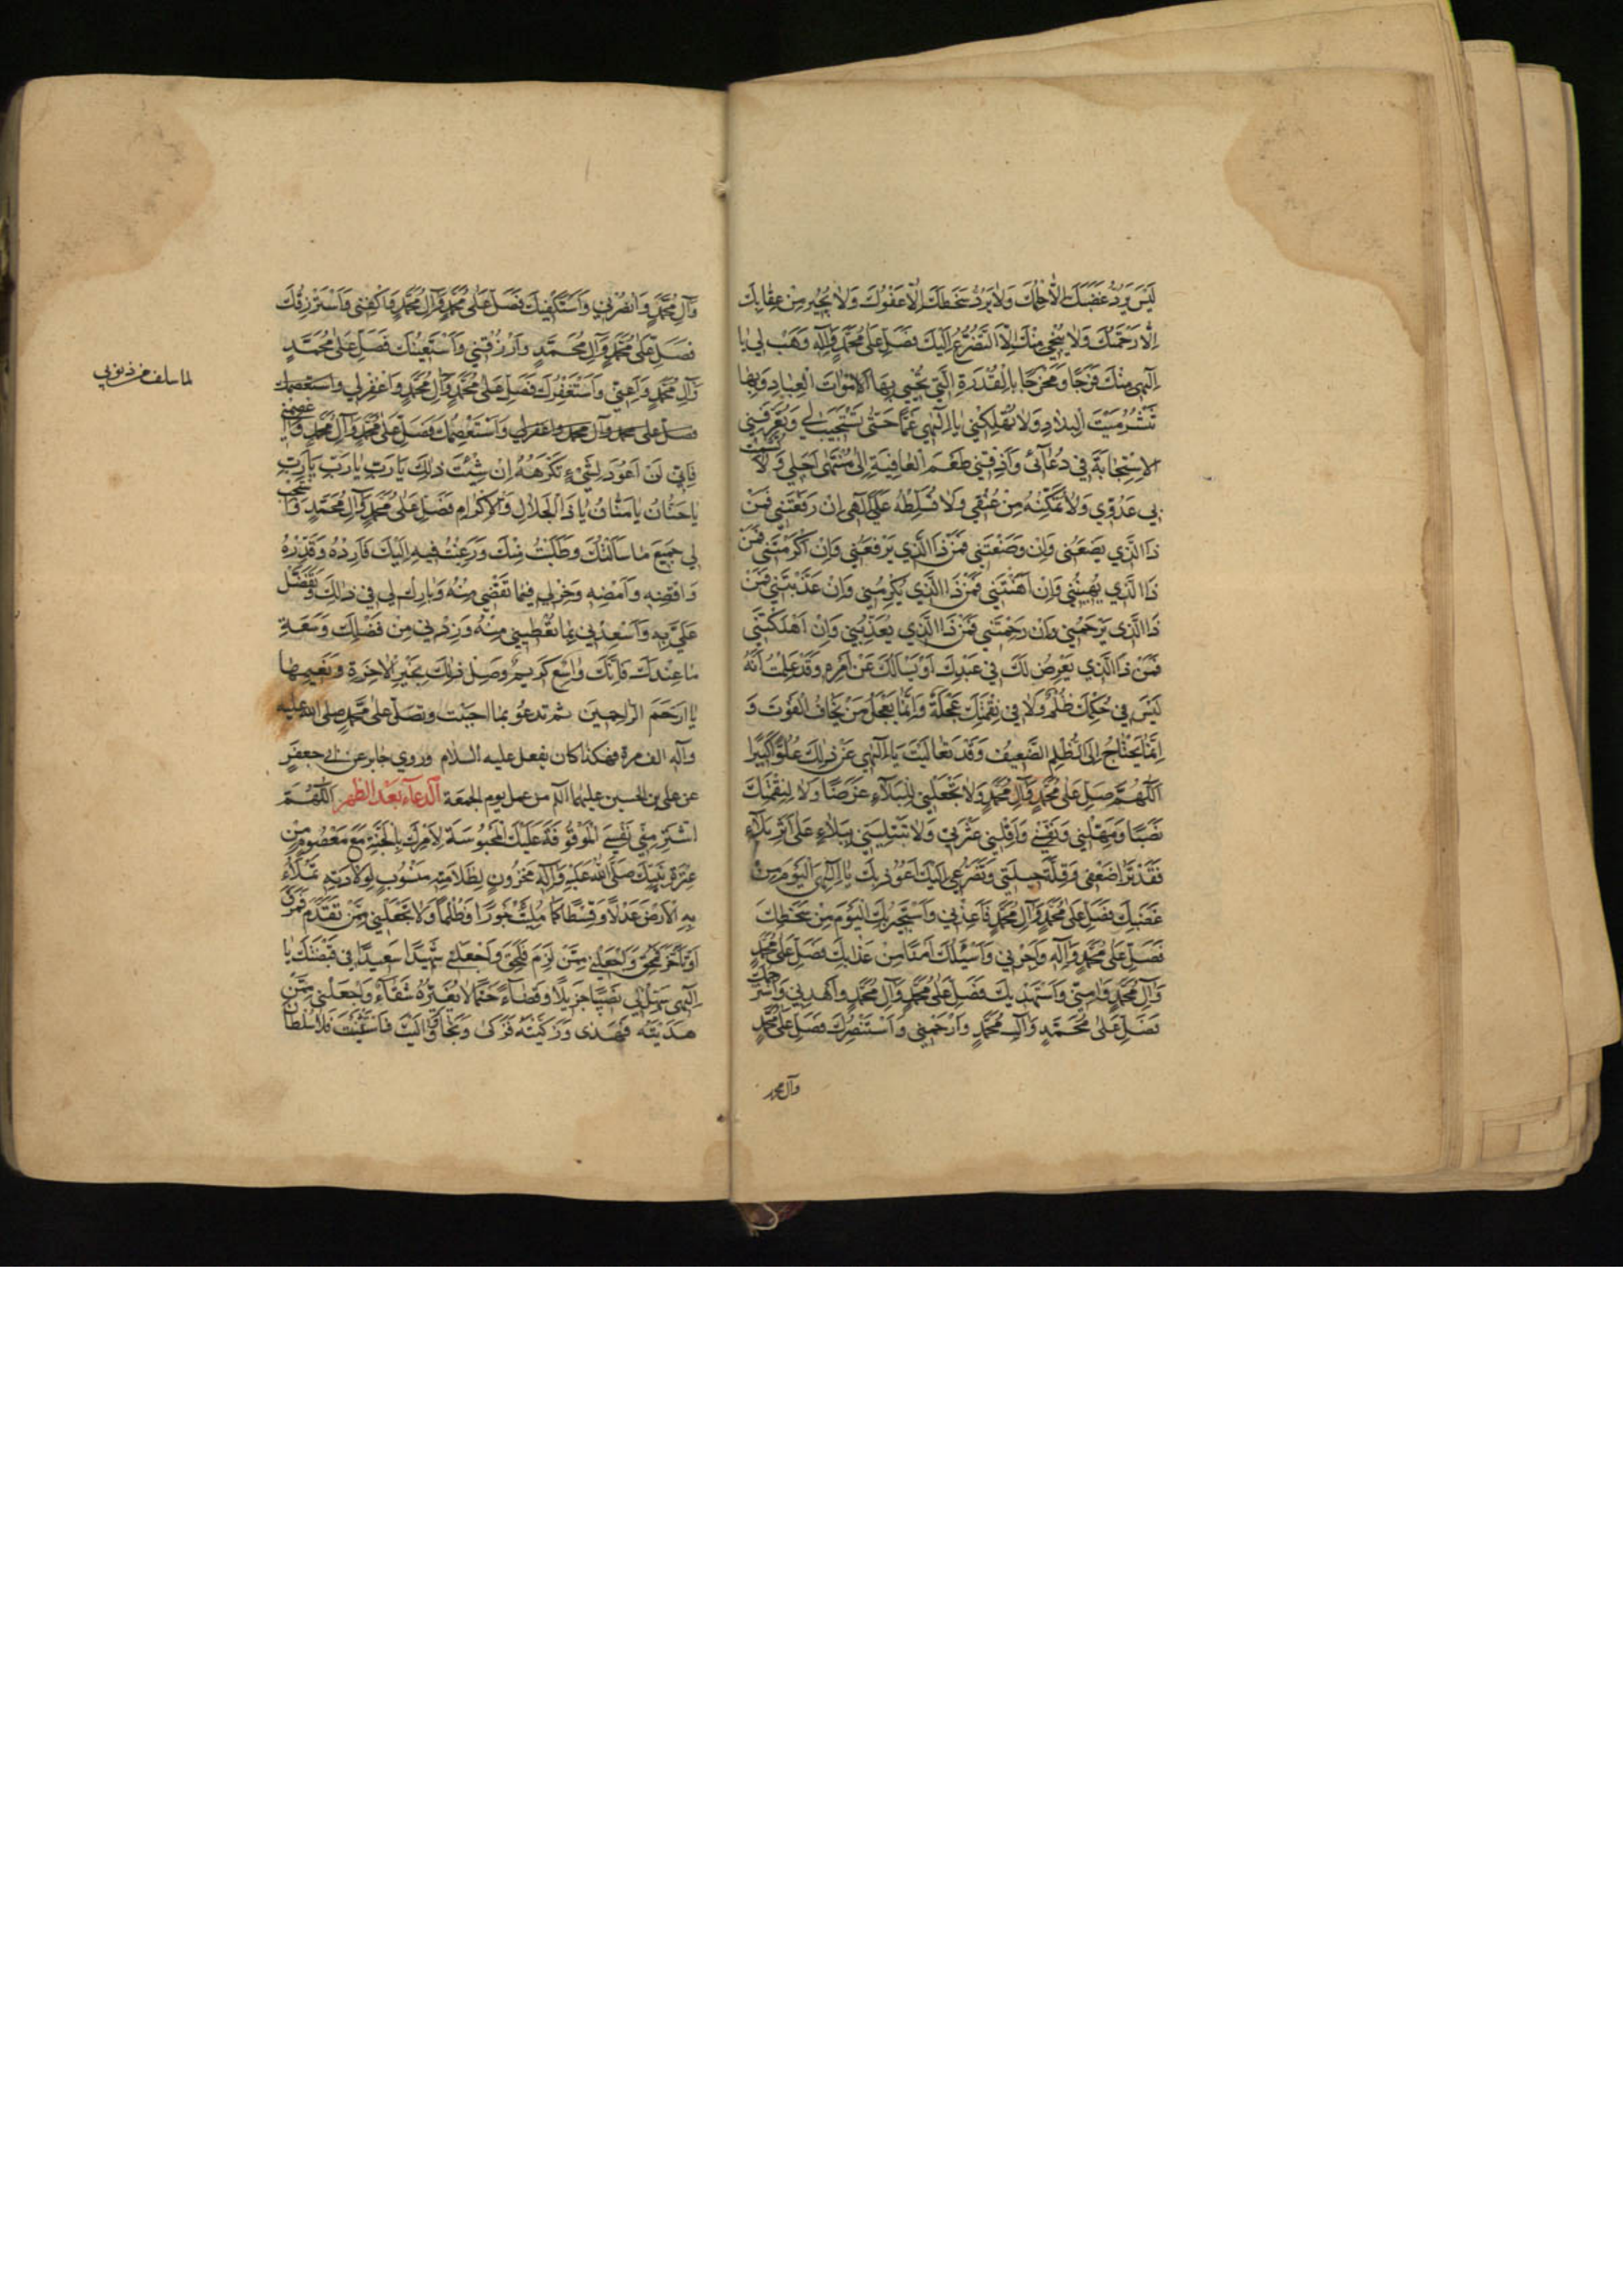 لَيْسَ يَرُدُّ غَضَبَكَ اِلَّا حِلْمُكَ وَلَا يَرُدُّ سَخَطَكَ اِلَّا عَفْوُكَ وَلَا يُجِيرُ مِنْ عِقَابِكَ
اِلَّا رَحْمَتُكَ وَلَا يُنْجِي مِنْكَ اِلَّا التَّضَرُّعُ اِلَيْكَ فَصَلِّ عَلَى مُحَمَّدٍ وَآلِهِ وَهَبْ لِي يَا
اِلَهِي مِنْكَ فَرَجًا وَمَخْرَجًا بِالْقُدْرَةِ الَّتِي تُحْيِي بِهَا اَمْوَاتَ الْعِبَادِ وَبِهَا
تَنْشُرُ مَيْتَ الْبِلَادِ وَلَا تُهْلِكْنِي يَا اِلَهِي غَمًّا حَتَّى تَسْتَجِيبَ لِي وَتُعَرِّفَنِي
الْاِسْتِجَابَةَ فِي دُعَآئِي وَاَذِقْنِي طَعْمَ الْعَافِيَةِ اِلَى مُنْتَهَى اَجَلِي وَلَا تُشْمِتْ
بِي عَدُوِّي وَلَا تُمَكِّنْهُ مِنْ عُنُقِي وَلَا تُسَلِّطْهُ عَلَيَّ اِلَهِي اِنْ رَفَعْتَنِي فَمَنْ
ذَا الَّذِي يَضَعُنِي وَاِنْ وَضَعْتَنِي فَمَنْ ذَا الَّذِي يَرْفَعُنِي وَاِنْ اَكْرَمْتَنِي فَمَنْ
ذَا الَّذِي يُهِينُنِي وَاِنْ اَهَنْتَنِي فَمَنْ ذَا الَّذِي يُكْرِمُنِي وَاِنْ عَذَّبْتَنِي فَمَنْ
ذَا الَّذِي يَرْحَمُنِي وَاِنْ رَحِمْتَنِي فَمَنْ ذَا الَّذِي يُعَذِّبُنِي وَاِنْ اَهْلَكْتَنِي
فَمَنْ ذَا الَّذِي يَعْرِضُ لَكَ فِي عَبْدِكَ اَوْ يَسْأَلُكَ عَنْ اَمْرِهِ وَقَدْ عَلِمْتُ اَنَّهُ
لَيْسَ فِي حُكْمِكَ ظُلْمٌ وَلَا فِي نِقْمَتِكَ عَجَلَةٌ وَاِنَّمَا يَعْجَلُ مَنْ يَخَافُ الْفَوْتَ وَ
اِنَّمَا يَحْتَاجُ اِلَى الظُّلْمِ الضَّعِيفُ وَقَدْ تَعَالَيْتَ يَا اِلَهِي عَنْ ذَلِكَ عُلُوًّا كَبِيرًا
اَللَّهُمَّ صَلِّ عَلَى مُحَمَّدٍ وَآلِ مُحَمَّدٍ وَلَا تَجْعَلْنِي لِلْبَلَآءِ غَرَضًا وَلَا لِنِقْمَتِكَ
نَصَبًا وَمَهِّلْنِي وَنَفِّسْنِي وَاَقِلْنِي عَثْرَتِي وَلَا تَبْتَلِيَنِّي بِبَلَآءٍ عَلَى اَثَرِ بَلَآءٍ
فَقَدْ تَرَى ضَعْفِي وَقِلَّةَ حِيلَتِي وَتَضَرُّعِي اِلَيْكَ اَعُوذُ بِكَ يَا اِلَهِي الْيَوْمَ مِنْ
غَضَبِكَ فَصَلِّ عَلَى مُحَمَّدٍ وَآلِ مُحَمَّدٍ فَاَعِذْنِي وَاَسْتَجِيرُ بِكَ الْيَوْمَ مِنْ سَخَطِكَ
فَصَلِّ عَلَى مُحَمَّدٍ وَآلِهِ وَاَجِرْنِي وَاَسْئَلُكَ اَمْنًا مِنْ عَذَابِكَ فَصَلِّ عَلَى مُحَمَّدٍ
وَآلِ مُحَمَّدٍ وَآمِنِّي وَاَسْتَهْدِيكَ فَصَلِّ عَلَى مُحَمَّدٍ وَآلِ مُحَمَّدٍ وَاهْدِنِي وَاَسْتَرْحِمُكَ
فَصَلِّ عَلَى مُحَمَّدٍ وَآلِ مُحَمَّدٍ وَارْحَمْنِي وَاَسْتَنْصِرُكَ فَصَلِّ عَلَى مُحَمَّدٍ
وآل محمد
وَآلِ مُحَمَّدٍ وَانْصُرْنِي وَاَسْتَكْفِيكَ فَصَلِّ عَلَى مُحَمَّدٍ وَآلِ مُحَمَّدٍ وَاكْفِنِي وَاَسْتَرْزِقُكَ
فَصَلِّ عَلَى مُحَمَّدٍ وَآلِ مُحَمَّدٍ وَارْزُقْنِي وَاَسْتَعِينُكَ فَصَلِّ عَلَى مُحَمَّدٍ
وَآلِ مُحَمَّدٍ وَاَعِنِّي وَاَسْتَغْفِرُكَ فَصَلِّ عَلَى مُحَمَّدٍ وَآلِ مُحَمَّدٍ وَاغْفِرْ لِي واستعصمك
لما سلف من ذنوبي
فصل على محمد وآل محمد واغفر لي وَاَسْتَعْصِمُكَ فَصَلِّ عَلَى مُحَمَّدٍ وَآلِ مُحَمَّدٍ وَاعْصِمْنِي
فَاِنِّي لَنْ اَعُودَ لِشَيْءٍ تَكْرَهُهُ اِنْ شِئْتَ ذَلِكَ يَا رَبِّ يَا رَبِّ يَا رَبِّ
يَا حَنَّانُ يَا مَنَّانُ يَا ذَا الْجَلَالِ وَالْاِكْرَامِ فَصَلِّ عَلَى مُحَمَّدٍ وَآلِ مُحَمَّدٍ وَاسْتَجِبْ
لِي جَمِيعَ مَا سَاَلْتُكَ وَطَلَبْتُ مِنْكَ وَرَغِبْتُ فِيهِ اِلَيْكَ فَاَرِدْهُ وَقَدِّرْهُ
وَاقْضِهِ وَاَمْضِهِ وَخِرْ لِي فِيمَا تَقْضِي مِنْهُ وَبَارِكْ لِي فِي ذَالِكَ وَتَفَضَّلْ
عَلَيَّ بِهِ وَاَسْعِدْنِي بِمَا تُعْطِينِي مِنْهُ وَزِدْنِي مِنْ فَضْلِكَ وَسَعَةِ
مَا عِنْدَكَ فَاِنَّكَ وَاسِعٌ كَرِيمٌ وَصِلْ ذَلِكَ بِخَيْرِ الْاٰخِرَةِ وَنَعِيمِهَا
يَا اَرْحَمَ الرَّاحِمِينَ ثم تدعو بما احببت وتصلّ على محمد صلى الله عليه
وآله الف مرة فهكذا كان يفعل عليه السلام وروي جابر عن ابي جعفر
عن علي بن الحسين عليهما السلام من عمل يوم الجمعة الدعآء بَعْد الظهر اَللَّهُمَّ
اشْتَرِ مِنِّي نَفْسِيَ الْمَوْقُوفَةَ عَلَيْكَ الْمَحْبُوسَةَ لِاَمْرِكَ بِالْجَنَّةِ مَعَ مَعْصُومٍ مِنْ
عِتْرَةِ نَبِيِّكَ صَلَّى اللهُ عَلَيْهِ وَآلِهِ مَخْزُونٍ لِظَلَامَتِهِ مَنْسُوبٍ لِوِلَادَتِهِ تَمْلَأُ
بِهِ الْاَرْضَ عَدْلًا وَقِسْطًا كَمَا مُلِئَتْ جَوْرًا وَظُلْمًا وَلَا تَجْعَلْنِي مِمَّنْ تَقَدَّمَ فَمَرَقَ
اَوْ تَأَخَّرَ فَمُحِقَ وَاجْعَلْنِي مِمَّنْ لَزِمَ فَلَحِقَ وَاجْعَلْنِي شَهِيدًا سَعِيدًا فِي قَبْضَتِكَ يَا
اِلَهِي سَهِّلْ لِي نَصِيبًا جَزِيلًا وَقَضَاءً حَتْمًا لَا يُغَيِّرُهُ شَقَآءٌ وَاجْعَلْنِي مِمَّنْ
هَدَيْتَهُ فَهَدَى وَزَكَّيْتَهُ فَزَكَى وَنَجَا وَالَيْتَ فَاسْتَثْنَيْتَ فَلَا سُلْطَانَ